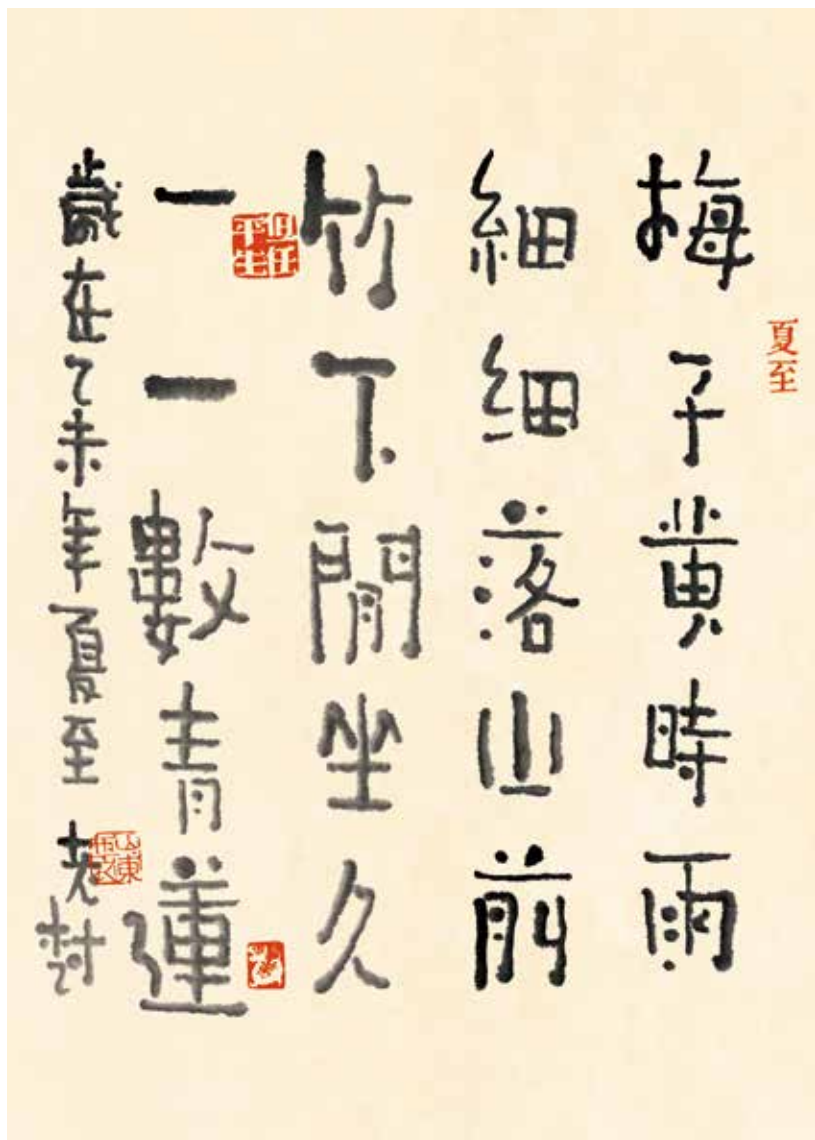 夏至
梅子黄時雨
細細落山前
竹下閒坐久
一一數青蓮
歲在乙未年夏至 老村
但任平生